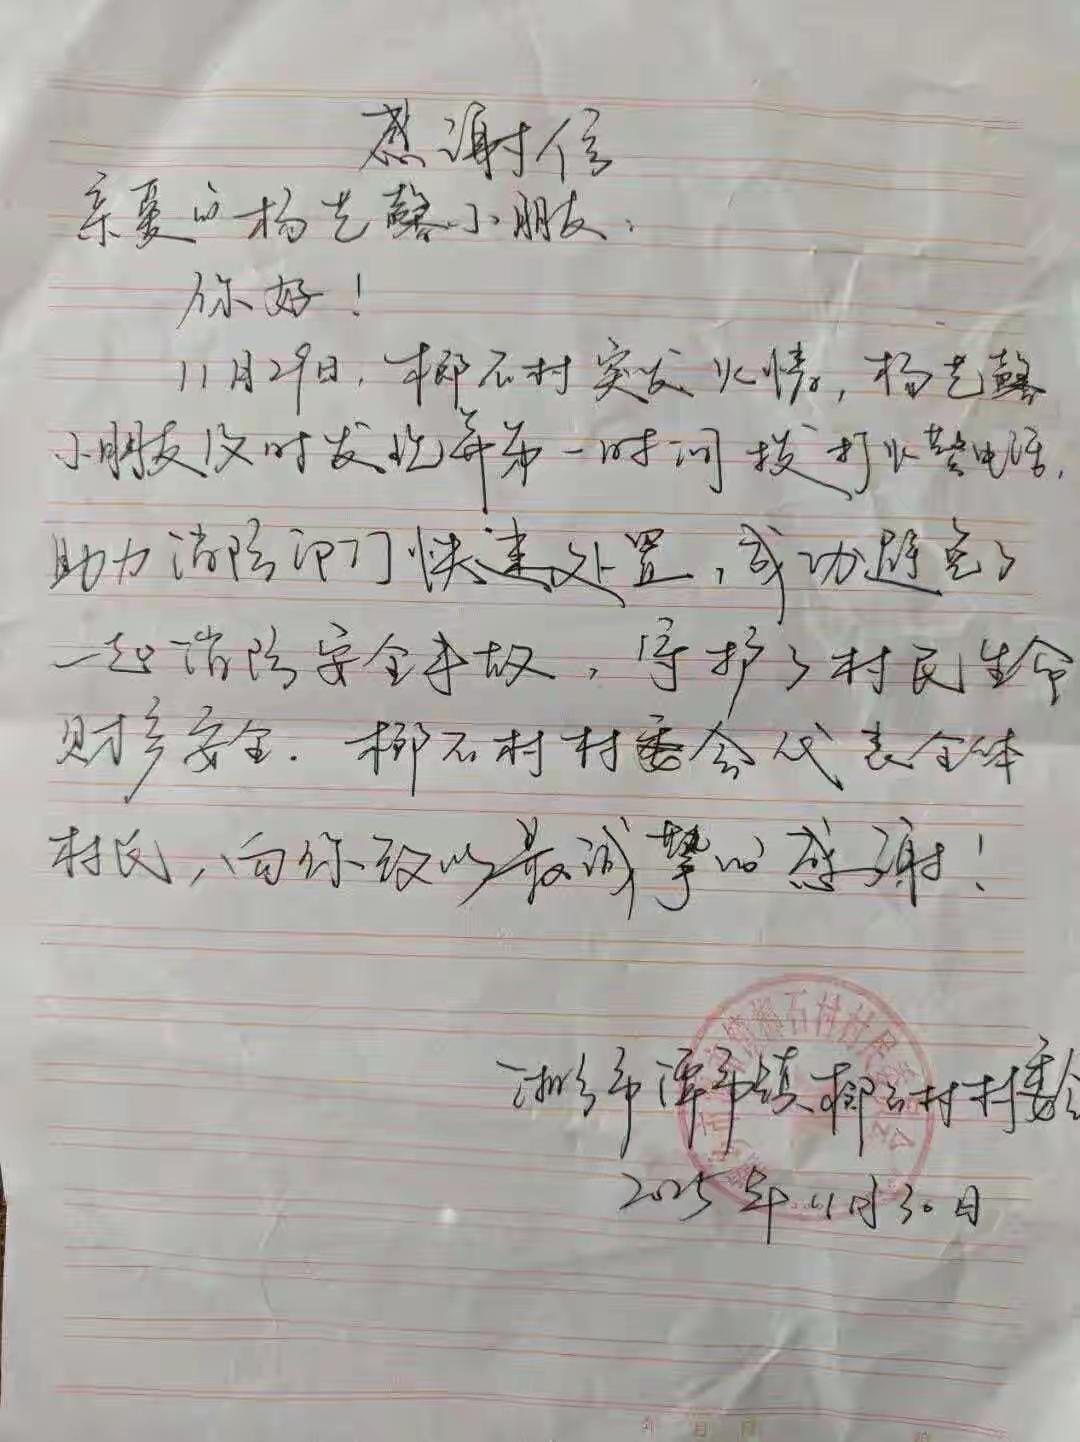 感谢信
亲爱的杨艺馨小朋友:
你好!
11月29日,椰石村突发火情,杨艺馨
小朋友及时发现并第一时间拨打火警电话,
助力消防部门快速处置,成功避免了
一起消防安全事故,守护了村民生命
财产安全.椰石村村委会代表全体
村民,向你致以最诚挚的感谢!
湘乡市潭市镇椰石村村委会
2025年11月30日
石村村民委员会